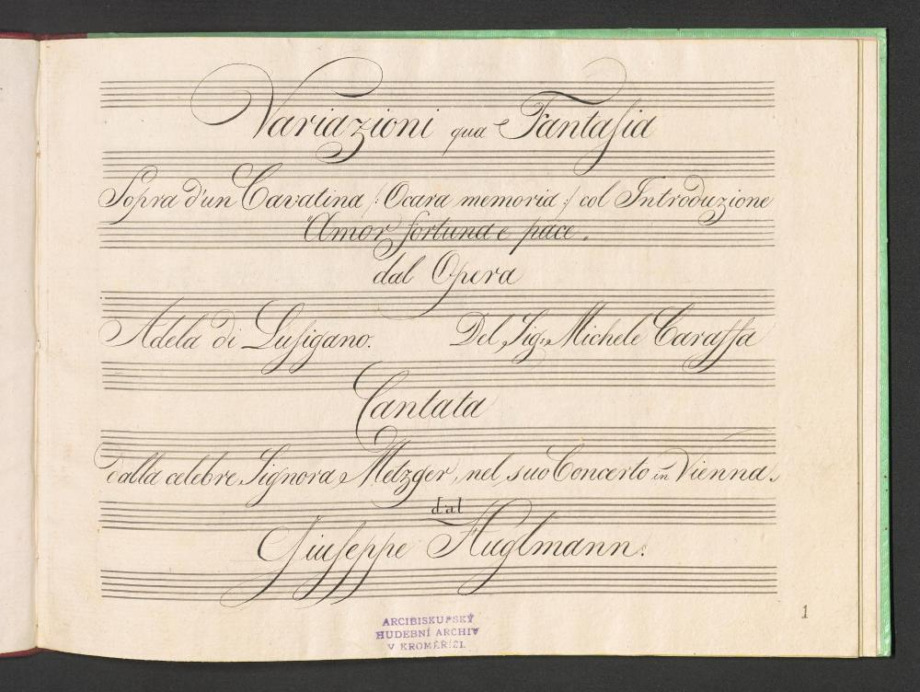 Variazioni qua Fantasia
Sopra d'un Cavatina /: Ocara memoria :/ col Introduzione
"Amor fortuna e pace.
dal Opera
Adela di Lusigano. Del Sig. Michele Caraffa
Cantata
dalla celebre Signora Metzger, nel suo Concerto in Vienna.
dal
Giuseppe Huglmann.
1
ARCIBISKUPSKÝ
HUDEBNÍ ARCHIV
V KROMĚŘÍŽI.